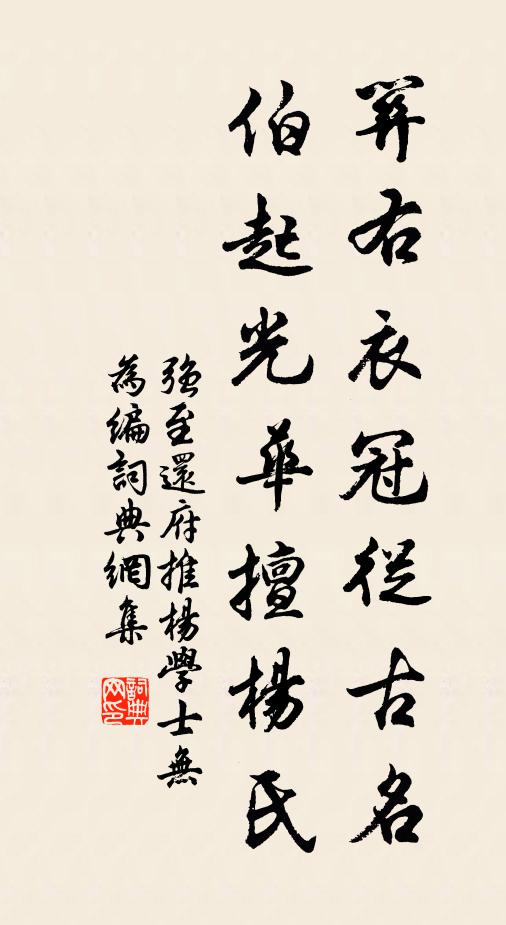 關右衣冠從古名
伯起光華擅楊氏
強至還府推楊學士無
為編詞典網集
詞典
网印